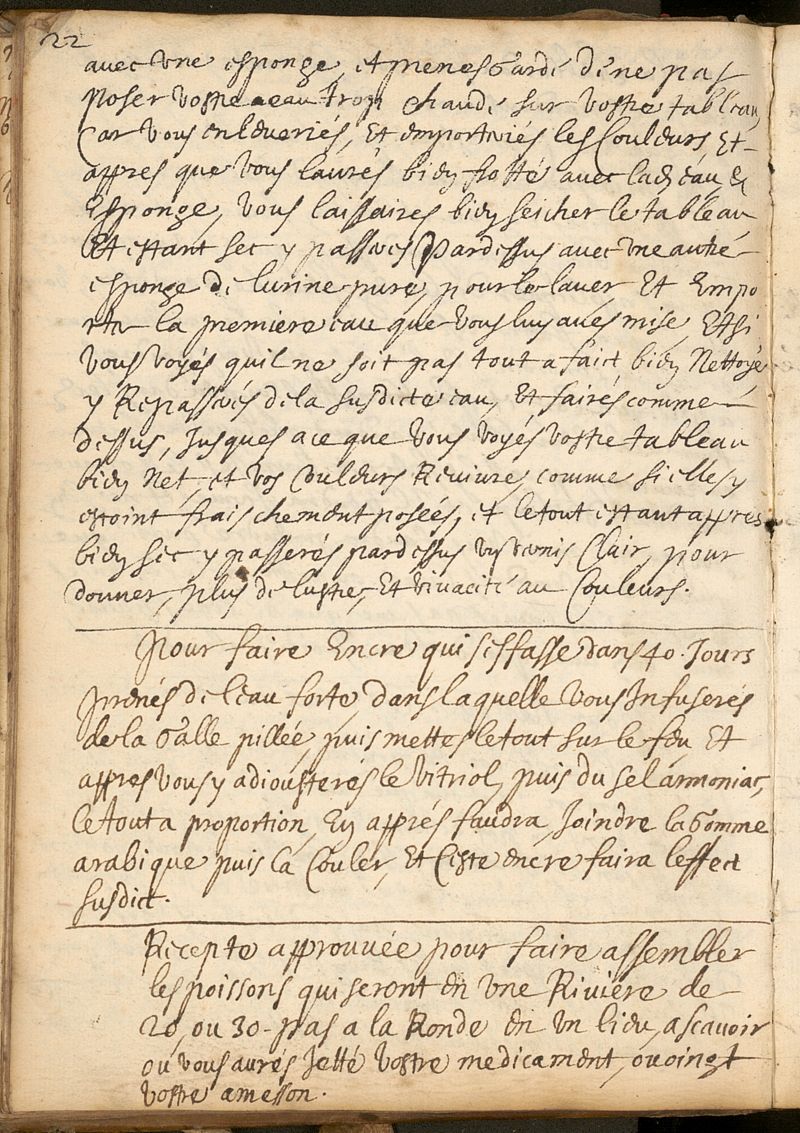 22
avec une esponge, et prenes Garde de ne pas
poser vostre eau trop chaude sur vostre tableau
Car vous enleveriés, Et emporteriés les Couleurs, Et
appres que vous laurés bien frotté avec lad. eau &
Esponge, vous laissaires bien seicher le tableau
Et estant sec y passeres Pardessus avec une autre
esponge de lurine pure, pour le laver Et Empo
rter la premiere eau que vous luy aves mise, Et si
vous voyés quil ne soit pas tout a faict bien Nettoyé
y Repasserés de la susdicte eau, Et fairés comme
dessus, Jusques a ce que vous voyés vostre tableau
bien Net, et vos Couleurs Revivre, comme si elles y
estoint fraischement posées, et le tout estant appres
bien sec y passerés pardessus un vernis Clair, pour
donner, plus de lustre, Et vivacité au Couleurs.
Pour faire Encre qui seffasse dans 40. Jours
prenés de leau forte, dans laquelle vous Infuserés
de la Galle pillée, puis mettes le tout sur le feu Et
appres vous y adjousterés le vitriol, puis du sel armoniac,
le tout a proportion, En apprés faudra Joindre la Gomme
arabique puis la Couler, Et Ceste encre faira leffect
susdict.
Recepte approuvée pour faire assembler
les poissons qui seront en une Riviere de
20, ou 30 - pas a la Ronde en un lieu, ascavoir
ou vous aurés Jetté vostre medicament, ou oingt
vostre amesson.